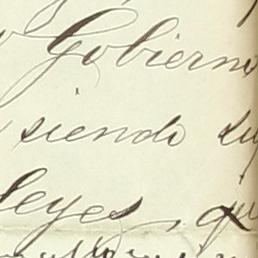 Gobierno
siendo su
leyes, qu